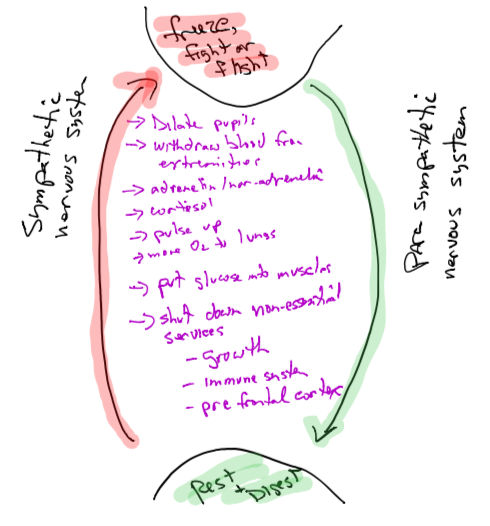 freeze,
fight or
flight
Sympathetic
nervous system
Para sympathetic
nervous system
→ Dilate pupils
→ withdraw blood from
extremities
→ adrenelin/nor-adrenelin
→ cortisol
→ pulse up
→ more O2 to lungs
→ put glucose into muscles
→ shut down non-essential
services
- growth
- immune system
- pre frontal cortex
Rest
+ Digest